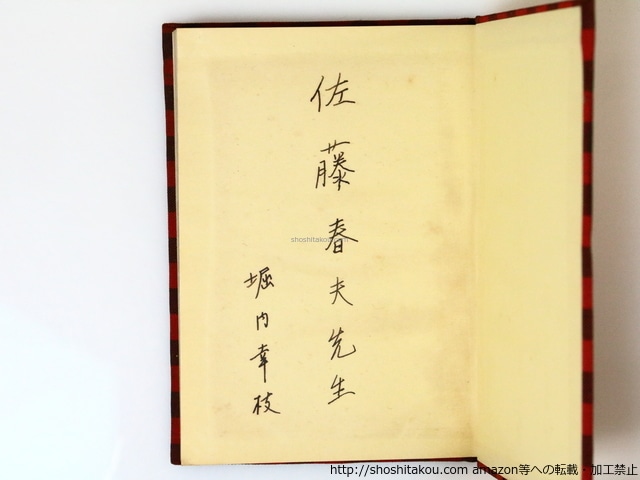 佐藤春夫先生
堀内幸枝
shoshitakou.com
http://shoshitakou.com amazon等への転載・加工禁止